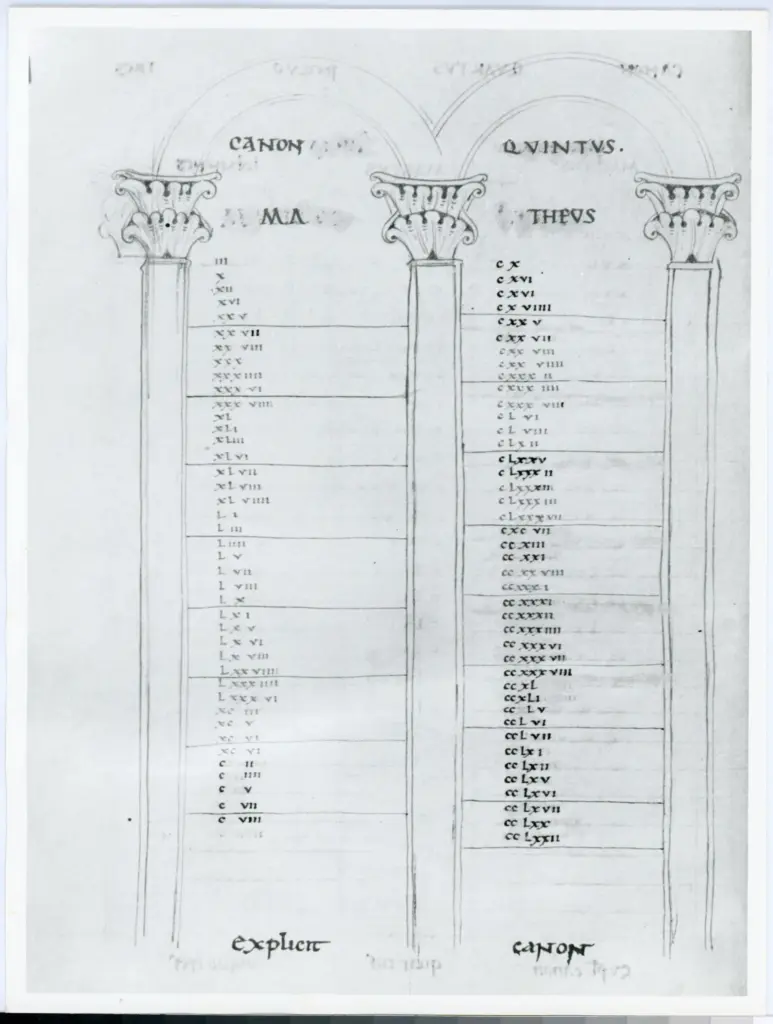 CANON QVINTVS.
MA THEVS
iii
x
xii
xvi
xx v
xx vii
xx viii
xxx
xxxiiii
xxx vi
xxx viii
xL
xLi
xLiii
xLvi
xL vii
xL viii
xL viiii
L i
L iii
L iiii
L v
L vii
L viii
L x
L x i
L x v
L x vi
L x viii
L xx viiii
L xxx iiii
L xxx vi
xc iii
xc v
xc vi
xc vi
c ii
c iiii
c v
c vii
c viii
c x
c xvi
c xvi
c x viiii
c xx v
c xx vii
c xx viii
c xx viiii
c xxx ii
c xxx iiii
c xxx viii
c L vi
c L viii
c Lx ii
c Lxxv
c Lxxx ii
c Lxxxiii
c Lxxx iii
c Lxxx vii
cxc vii
cc xiii
cc xxi
cc xx viii
cc xxx i
cc xxxi
cc xxxii
cc xxx iiii
cc xxx vi
cc xxx vii
cc xxx viii
cc xL
cc xLi
cc L v
cc L vi
cc L vii
cc Lx i
cc Lx ii
cc Lx v
cc Lx vi
cc Lx vii
cc Lxx
cc Lxxii
explicit canon